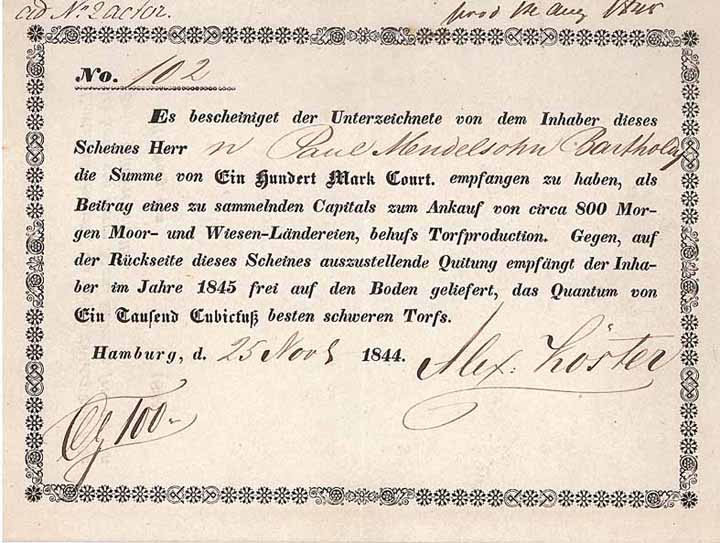 ad No 2 actor.
prod
No. 102
Es bescheiniget der Unterzeichnete von dem Inhaber dieses
Scheines Herrn Paul Mendelsohn Bartholdy
die Summe von Ein Hundert Mark Court. empfangen zu haben, als
Beitrag eines zu sammelnden Capitals zum Ankauf von circa 800 Mor-
gen Moor- und Wiesen-Ländereien, behufs Torfproduction. Gegen, auf
der Rückseite dieses Scheines auszustellende Quitung empfängt der Inha-
ber im Jahre 1845 frei auf den Boden geliefert, das Quantum von
Ein Tausend Cubicfuß besten schweren Torfs.
Hamburg, d. 25 Novb 1844. Alex: Löster
100